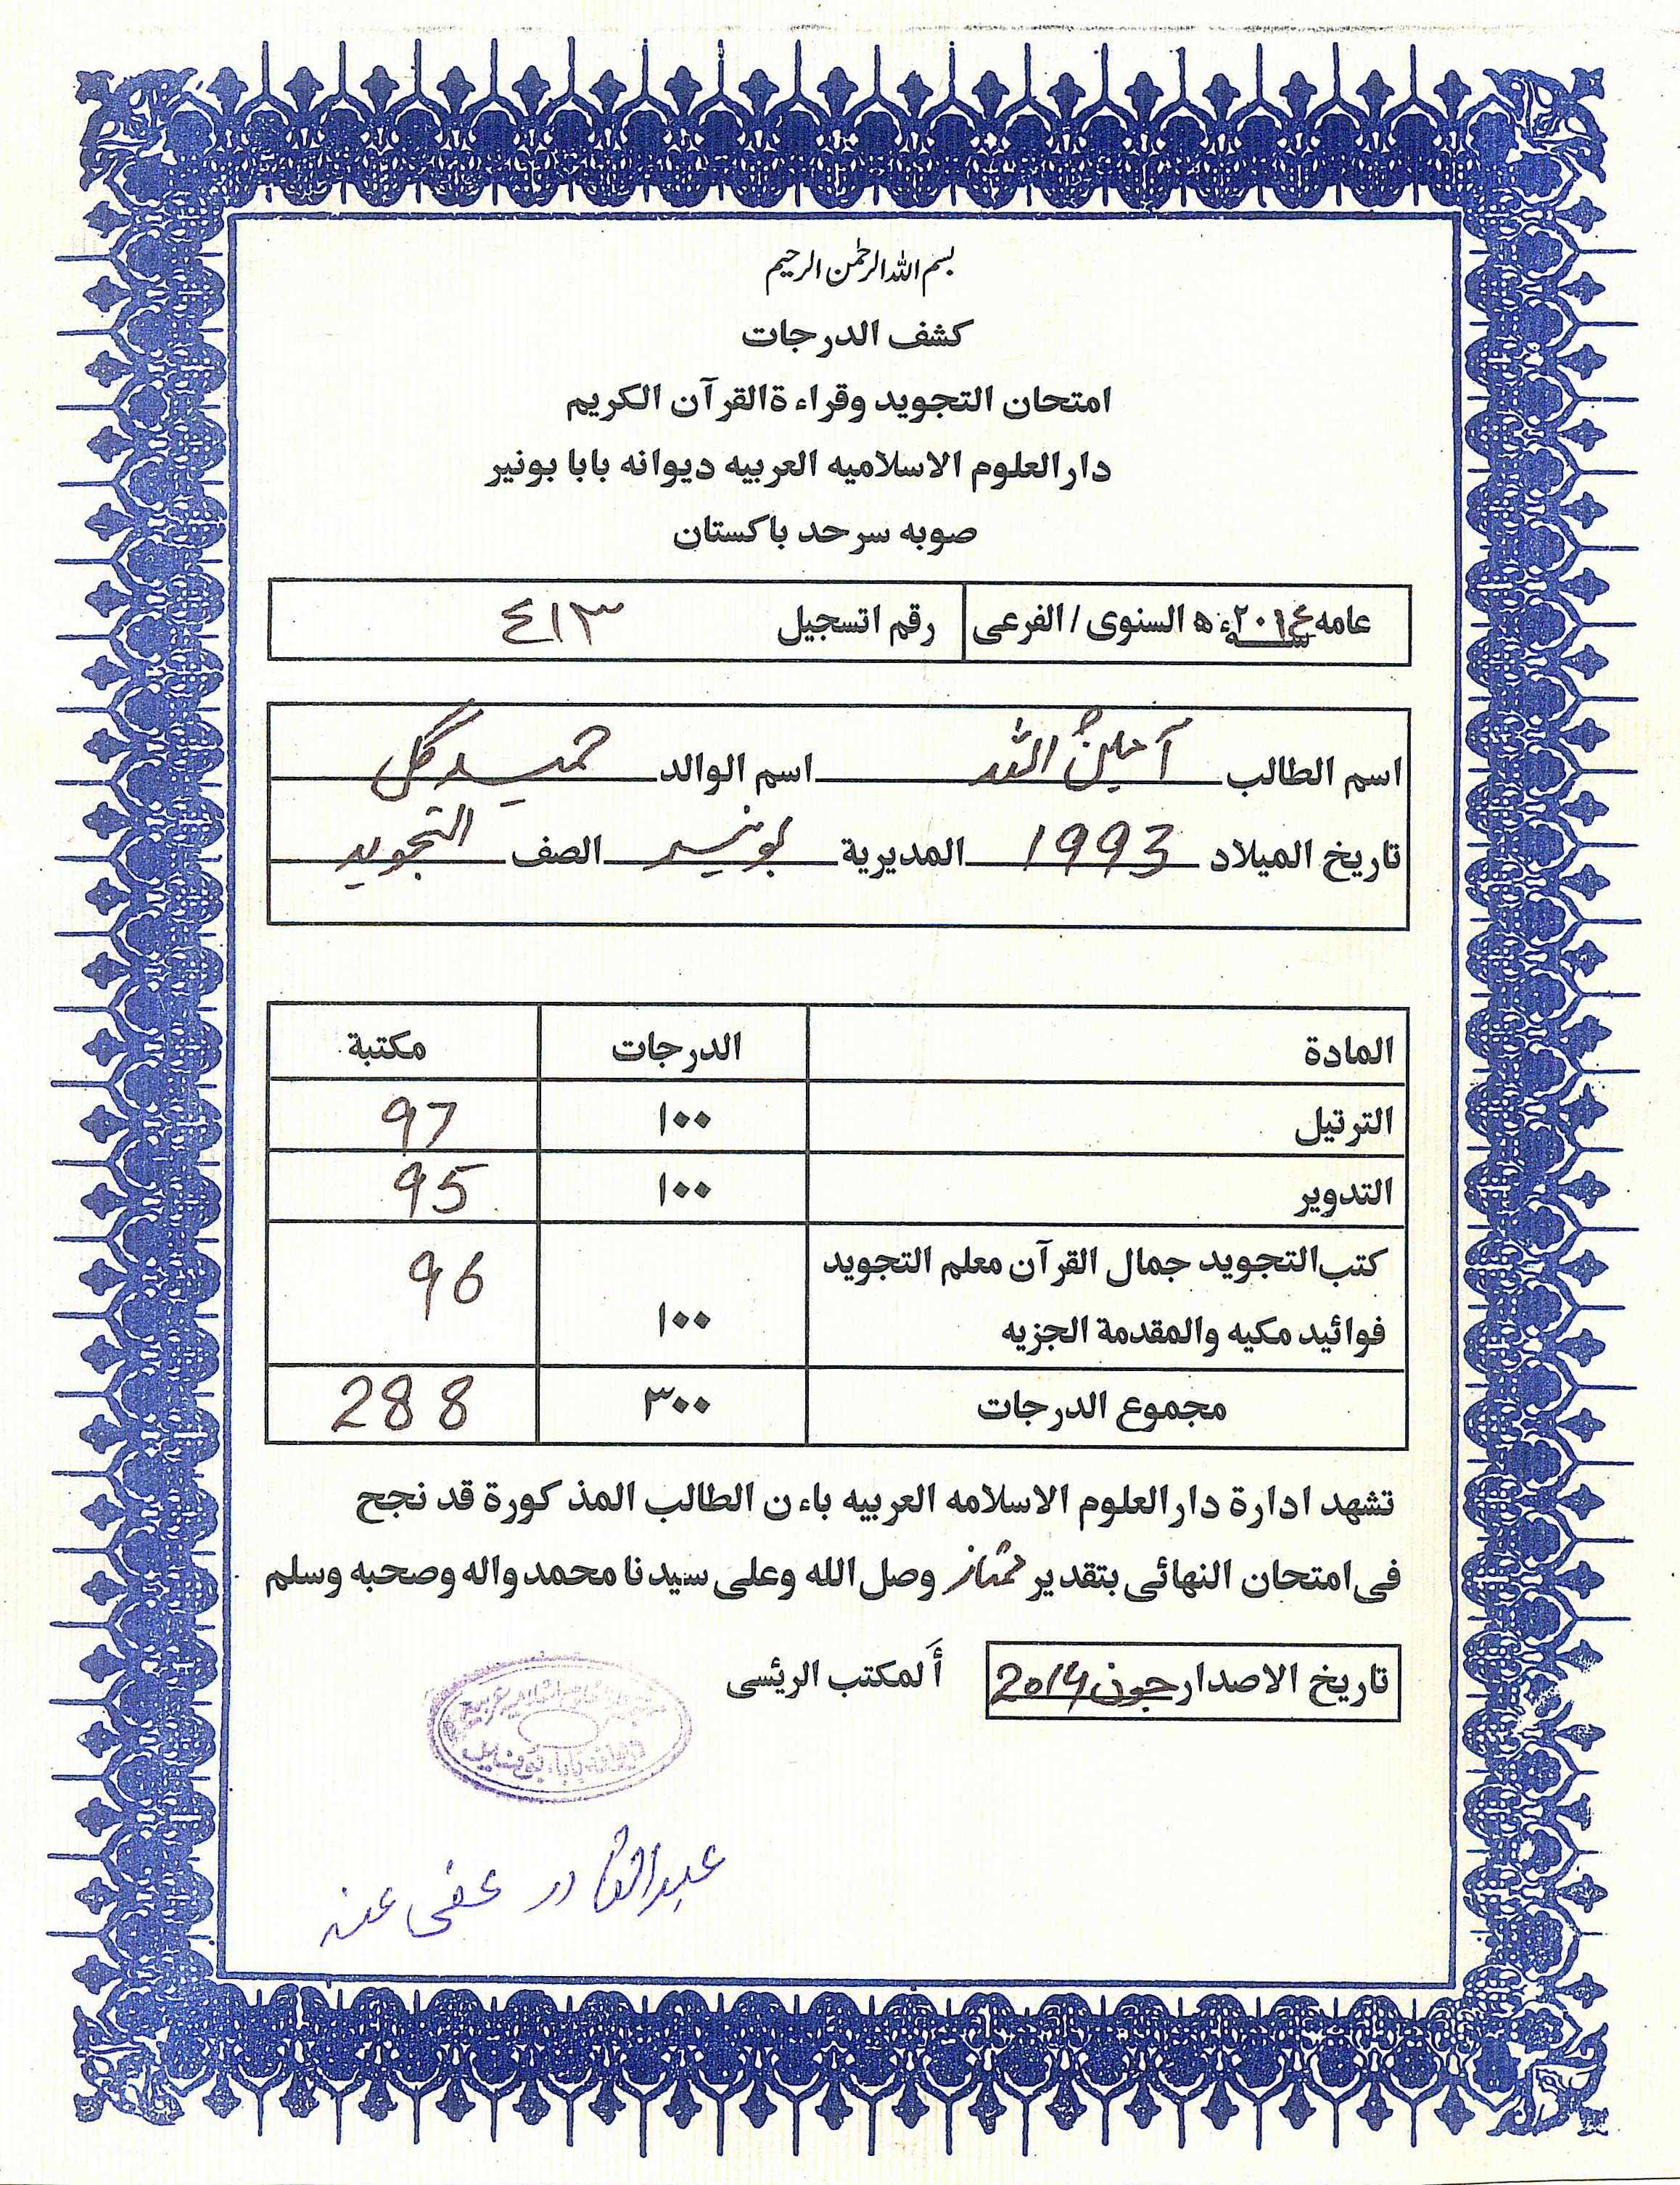 بسم الله الرحمن الرحيم
كشف الدرجات
امتحان التجويد وقراءة القرآن الكريم
دارالعلوم الاسلاميه العربيه ديوانه بابا بونير
صوبه سرحد باكستان
عامه ٢٠١٤ء ه السنوى / الفرعى رقم اتسجيل ٤١٣
اسم الطالب آمين الله اسم الوالد حميد گل
تاريخ الميلاد 1993 المديرية بونير الصف التجويد
المادة الدرجات مكتبة
الترتيل ١٠٠ 97
التدوير ١٠٠ 95
كتب التجويد جمال القرآن معلم التجويد
فوائيد مكيه والمقدمة الجزيه ١٠٠ 96
مجموع الدرجات ٣٠٠ 288
تشهد ادارة دارالعلوم الاسلامه العربيه باءن الطالب المذكورة قد نجح
فى امتحان النهائى بتقدير ممتاز وصل الله وعلى سيدنا محمد واله وصحبه وسلم
تاريخ الاصدار جون 2014 ألمكتب الرئسى
عبدالقادر عفى عنه